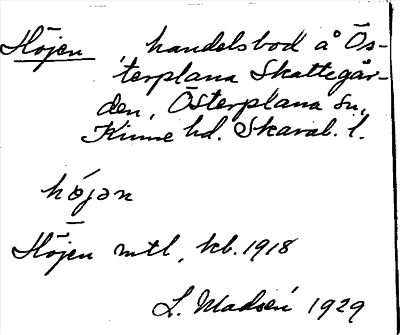 Höjen, handelsbod å Ös-
terplana Skattegår-
den, Österplana sn,
Kinne hd. Skarab. l.
höjən
Höjen mtl, kb. 1918
L. Madsén 1929